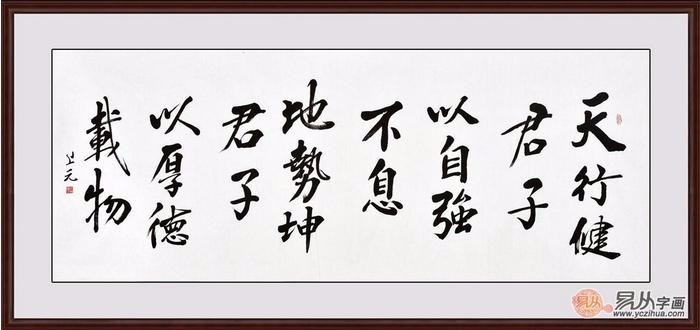 天行健
君子
以自強
不息
地勢坤
君子
以厚德
載物
易从字画
www.yczihua.com